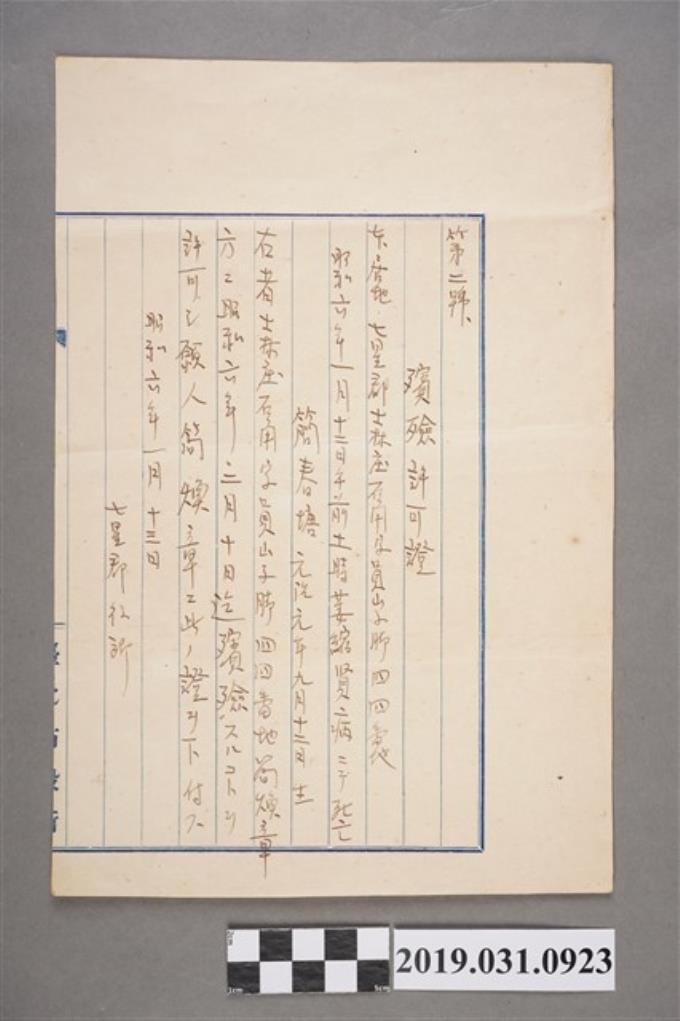 第二號、
殯殮許可證
本居地 七星郡士林庄石角字員山子脚四四番地
昭和六年一月十二日午前十一時萎縮腎病ニテ死亡
簡春塘 元治元年九月十二日生
右者士林庄石角字員山子脚四四番地簡煥章
方ニ昭和六年二月十日迄殯殮スルコトヲ
許可シ願人簡煥章ニ此ノ證ヲ下付ス
昭和六年一月十三日
七星郡役所
2019.031.0923